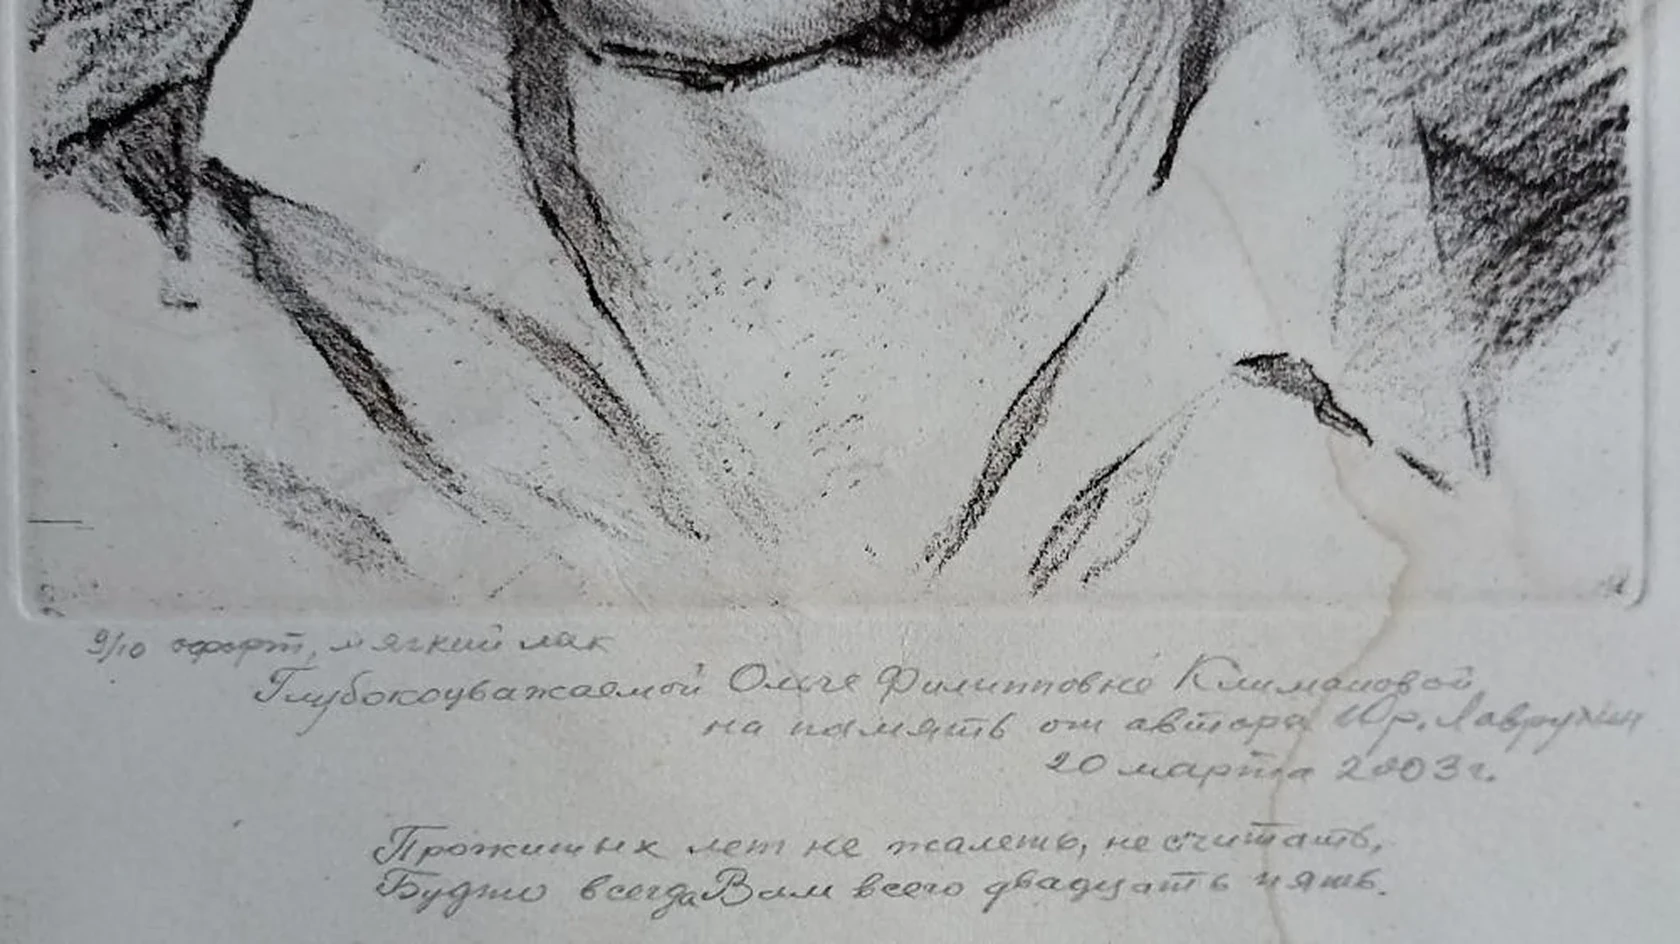 9/10 офорт, мягкий лак
Глубокоуважаемой Ольге Филипповне Климановой
на память от автора Юр. Лаврухин
20 марта 2003 г.
Прожитых лет не жалеть, не считать,
Будто всегда Вам всего двадцать пять.